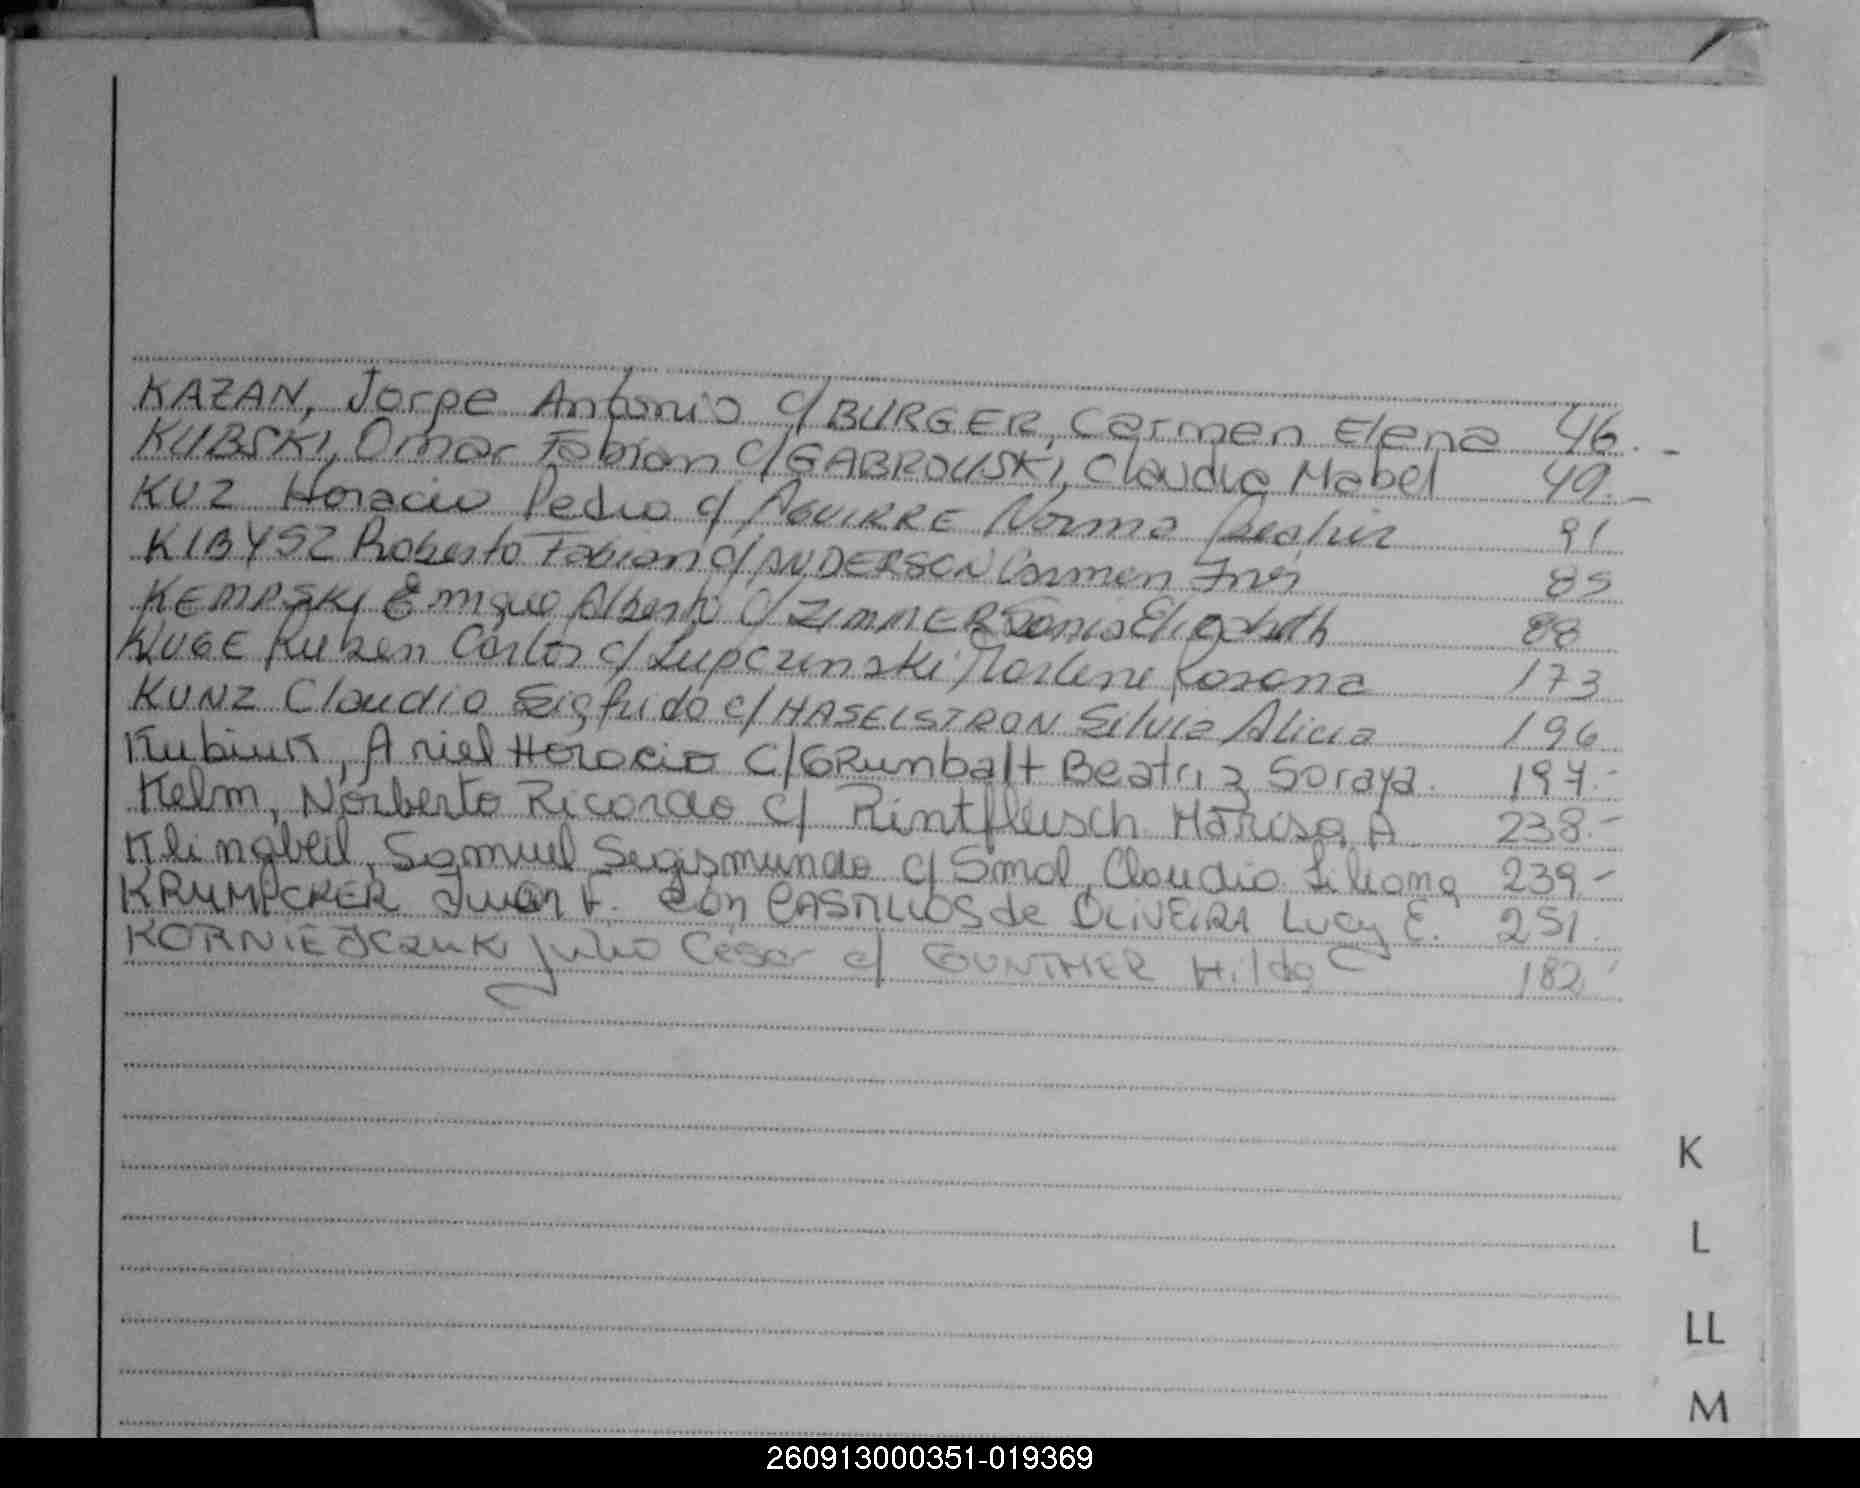 KAZAN, Jorge Antonio c/ BURGER, Carmen Elena 46.-
KUBSKI, Omar Fabian c/ GABROUSKI, Claudia Mabel 49.-
KUZ Horacio Pedro c/ AGUIRRE Norma Beatriz 91
KIBYSZ Roberto Fabian c/ ANDERSON Carmen Ines 85
KEMPSKI Enrique Alberto c/ ZIMMER Sonia Elizabeth 88
KUGE Ruben Carlos c/ Lupczinski Marlene Rosana 173
KUNZ Claudio Sigfrido c/ HASELSTRON Silvia Alicia 196
Kubiuk, Ariel Horacio C/ GRumbalt Beatriz Soraya. 197.-
Kelm, Norberto Ricardo c/ Rintfleisch Marisa A 238.-
Klingbeil, Samuel Segismundo c/ Smol, Claudia Liliana 239.-
KRUMPCKER Juan F. con CASTILLOS de OLIVEIRA Lucy E. 251.
KORNIEJCZUK Julio César c/ GUNTHER Hilda C 182
K
L
LL
M
260913000351-019369